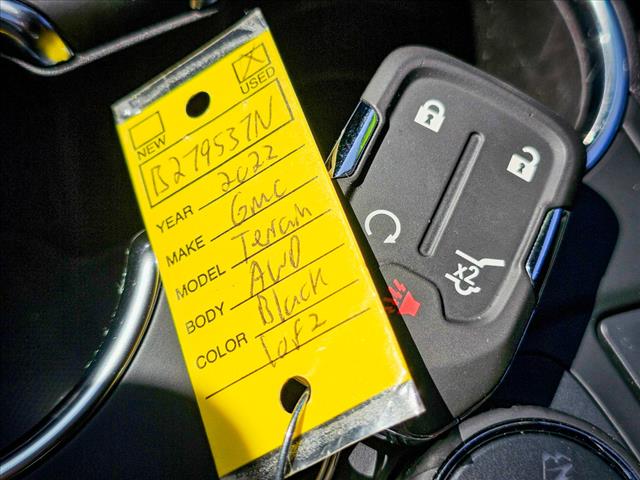 USED
NEW
B279537N
YEAR 2022
MAKE Gmc
MODEL Terrain
BODY AWD
COLOR Black
1 of 2
x2